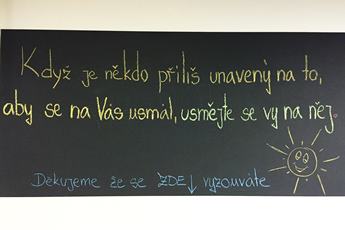 Když je někdo příliš unavený na to,
aby se na Vás usmál, usmějte se vy na něj.
Děkujeme že se ZDE↓ vyzouváte